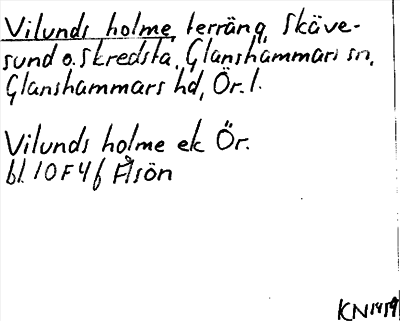 Vilunds holme, terräng, Skäve-
sund o. Skredsta, Glanshammars sn,
Glanshammars hd, Ör. l.
Vilunds holme ek Ör.
bl. 10F4f Åsön
KN